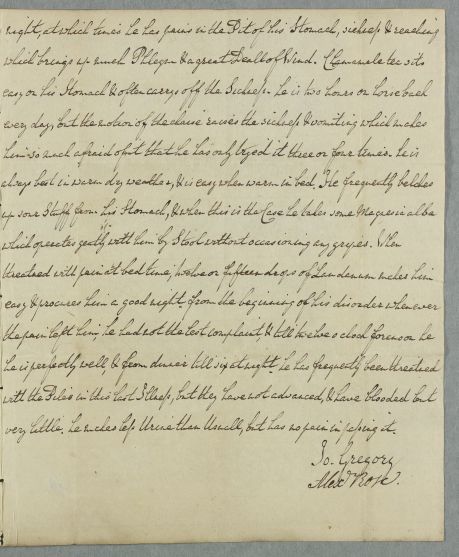 night, at which times he has pains in the Pit of his Stomach, sickness & reaching
which brings up much Phlegm & a great Deall of Wind. Chamamile tea sits
easy on his Stomach & often carrys off the Sickness. he is two hours on horse back
every day, but the motion of the chaise raises the sickness & vomiting which makes
him so much afraid of it that he has only tryed it three or four times. he is
always best in warm dry weather, & is easy when warm in bed. He frequently belches
up sour Stuff from his Stomach, & when this is the Case he takes some Magnesia alba
which operates gently with him by Stool without occasioning any gripes. When
threatned with pain at bed time, twelve or fifteen drops of Laudanum makes him
easy & procures him a good night. from the beginning of his disorder whenever
the pain left him, he had not the lest complaint, & till twelve o clock forenoon he
he is perfectly well, & from dinner till six at night, he has frequently been threatned
with the Piles in this last Illness, but they have not advanced, & have blooded but
very little. he makes less Urine than Usuall, but has no pain in passing it.
Jo. Gregory
Alexr Rose.